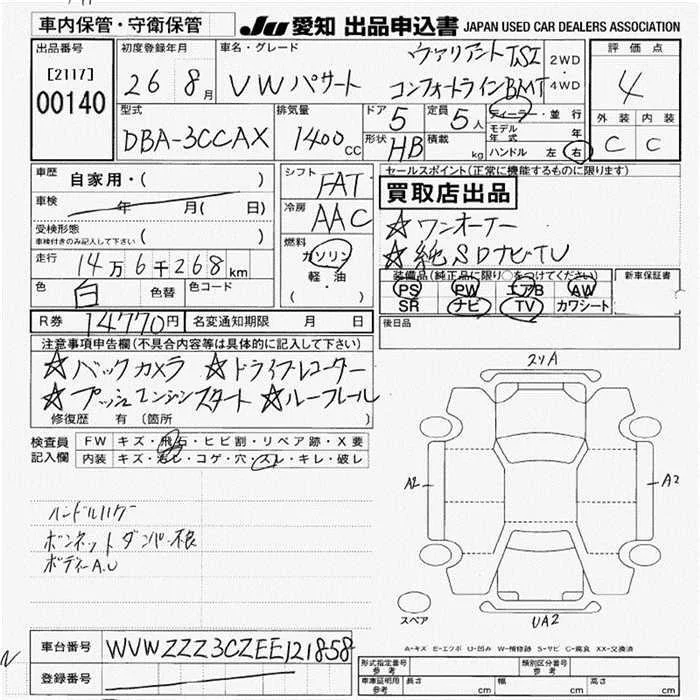 車内保管・守衛保管
JU 愛知 出品申込書 JAPAN USED CAR DEALERS ASSOCIATION
出品番号
[2117]
00140
初度登録年月
26 8月
車名・グレード
VWパサート
ヴァリアントTSI
コンフォートラインBMT
2WD
4WD
評価点
4
外装 内装
C C
型式
DBA-3CCAX
排気量
1400cc
ドア 5
定員 5人
形状 HB
積載 kg
ディーラー・並行
モデル年式 年
ハンドル 左 右
車歴 自家用・( )
車検 年 月( 日)
受検形態
車検付きのみ記入して下さい ( )
走行 14万6千268km
色 白 色替 色コード
シフト FAT
冷房 AAC
燃料
ガソリン
軽・油
( )
セールスポイント(正常に機能するものに限ります)
買取店出品
☆ワンオーナー
☆純SDナビTV
装備品(純正品に限り○をつけてください)
PS PW エアB AW
SR ナビ TV カワシート
新車保証書
後日品
R券 14770円 名変通知期限 月 日
注意事項申告欄(不具合内容等は具体的に記入して下さい)
☆バックカメラ ☆ドライブレコーダー
☆プッシュエンジンスタート ☆ルーフレール
修復歴 有 (箇所 )
検査員記入欄
FW キズ・飛石・ヒビ割・リペア跡・X要
内装 キズ・汚レ・コゲ・穴・スレ・キレ・破レ
ハンドルハゲ
ボンネットダンパー不良
ボディーA.U
2ソA
A2
A2
UA2
スペア
A-キズ E-エクボ U-凹み W-補修跡 S-サビ C-腐食 XX-交換済
車台番号 WVWZZZ3CZEE121858
登録番号
形式指定番号 参考
類別区分番号 参考
車庫証明用 参考 長さ cm 幅 cm 高さ cm